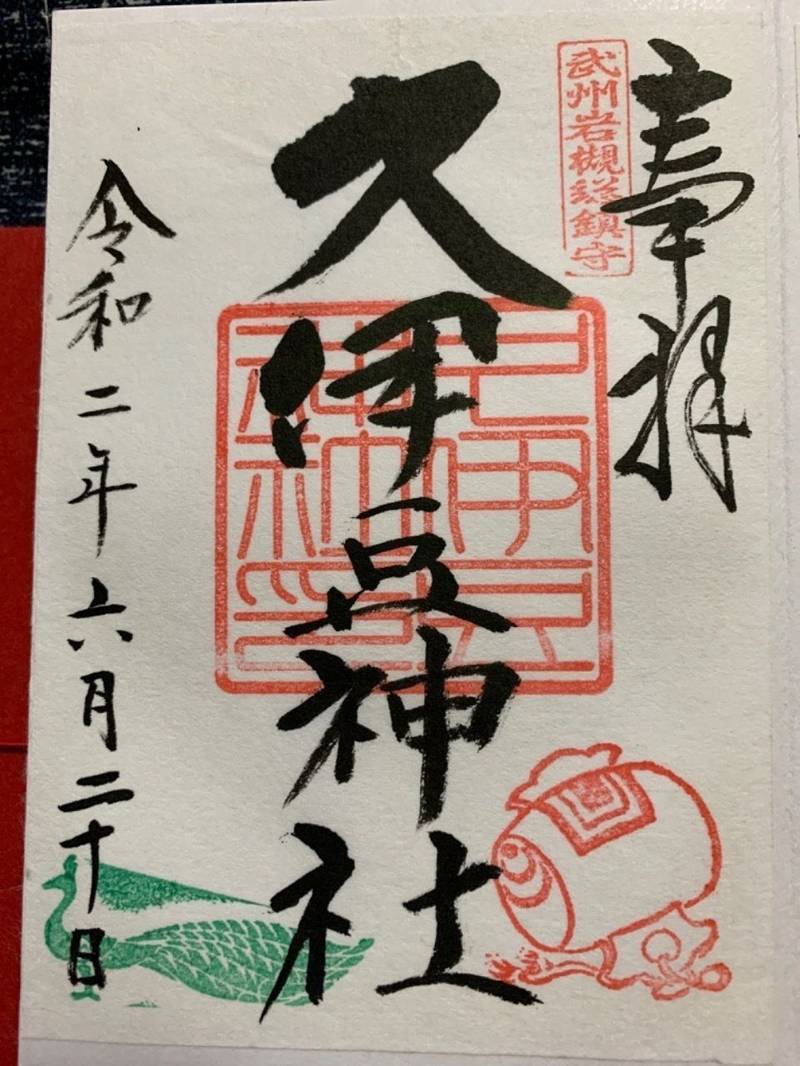 奉拝
武州岩槻総鎮守
久伊豆神社
令和二年六月二十日